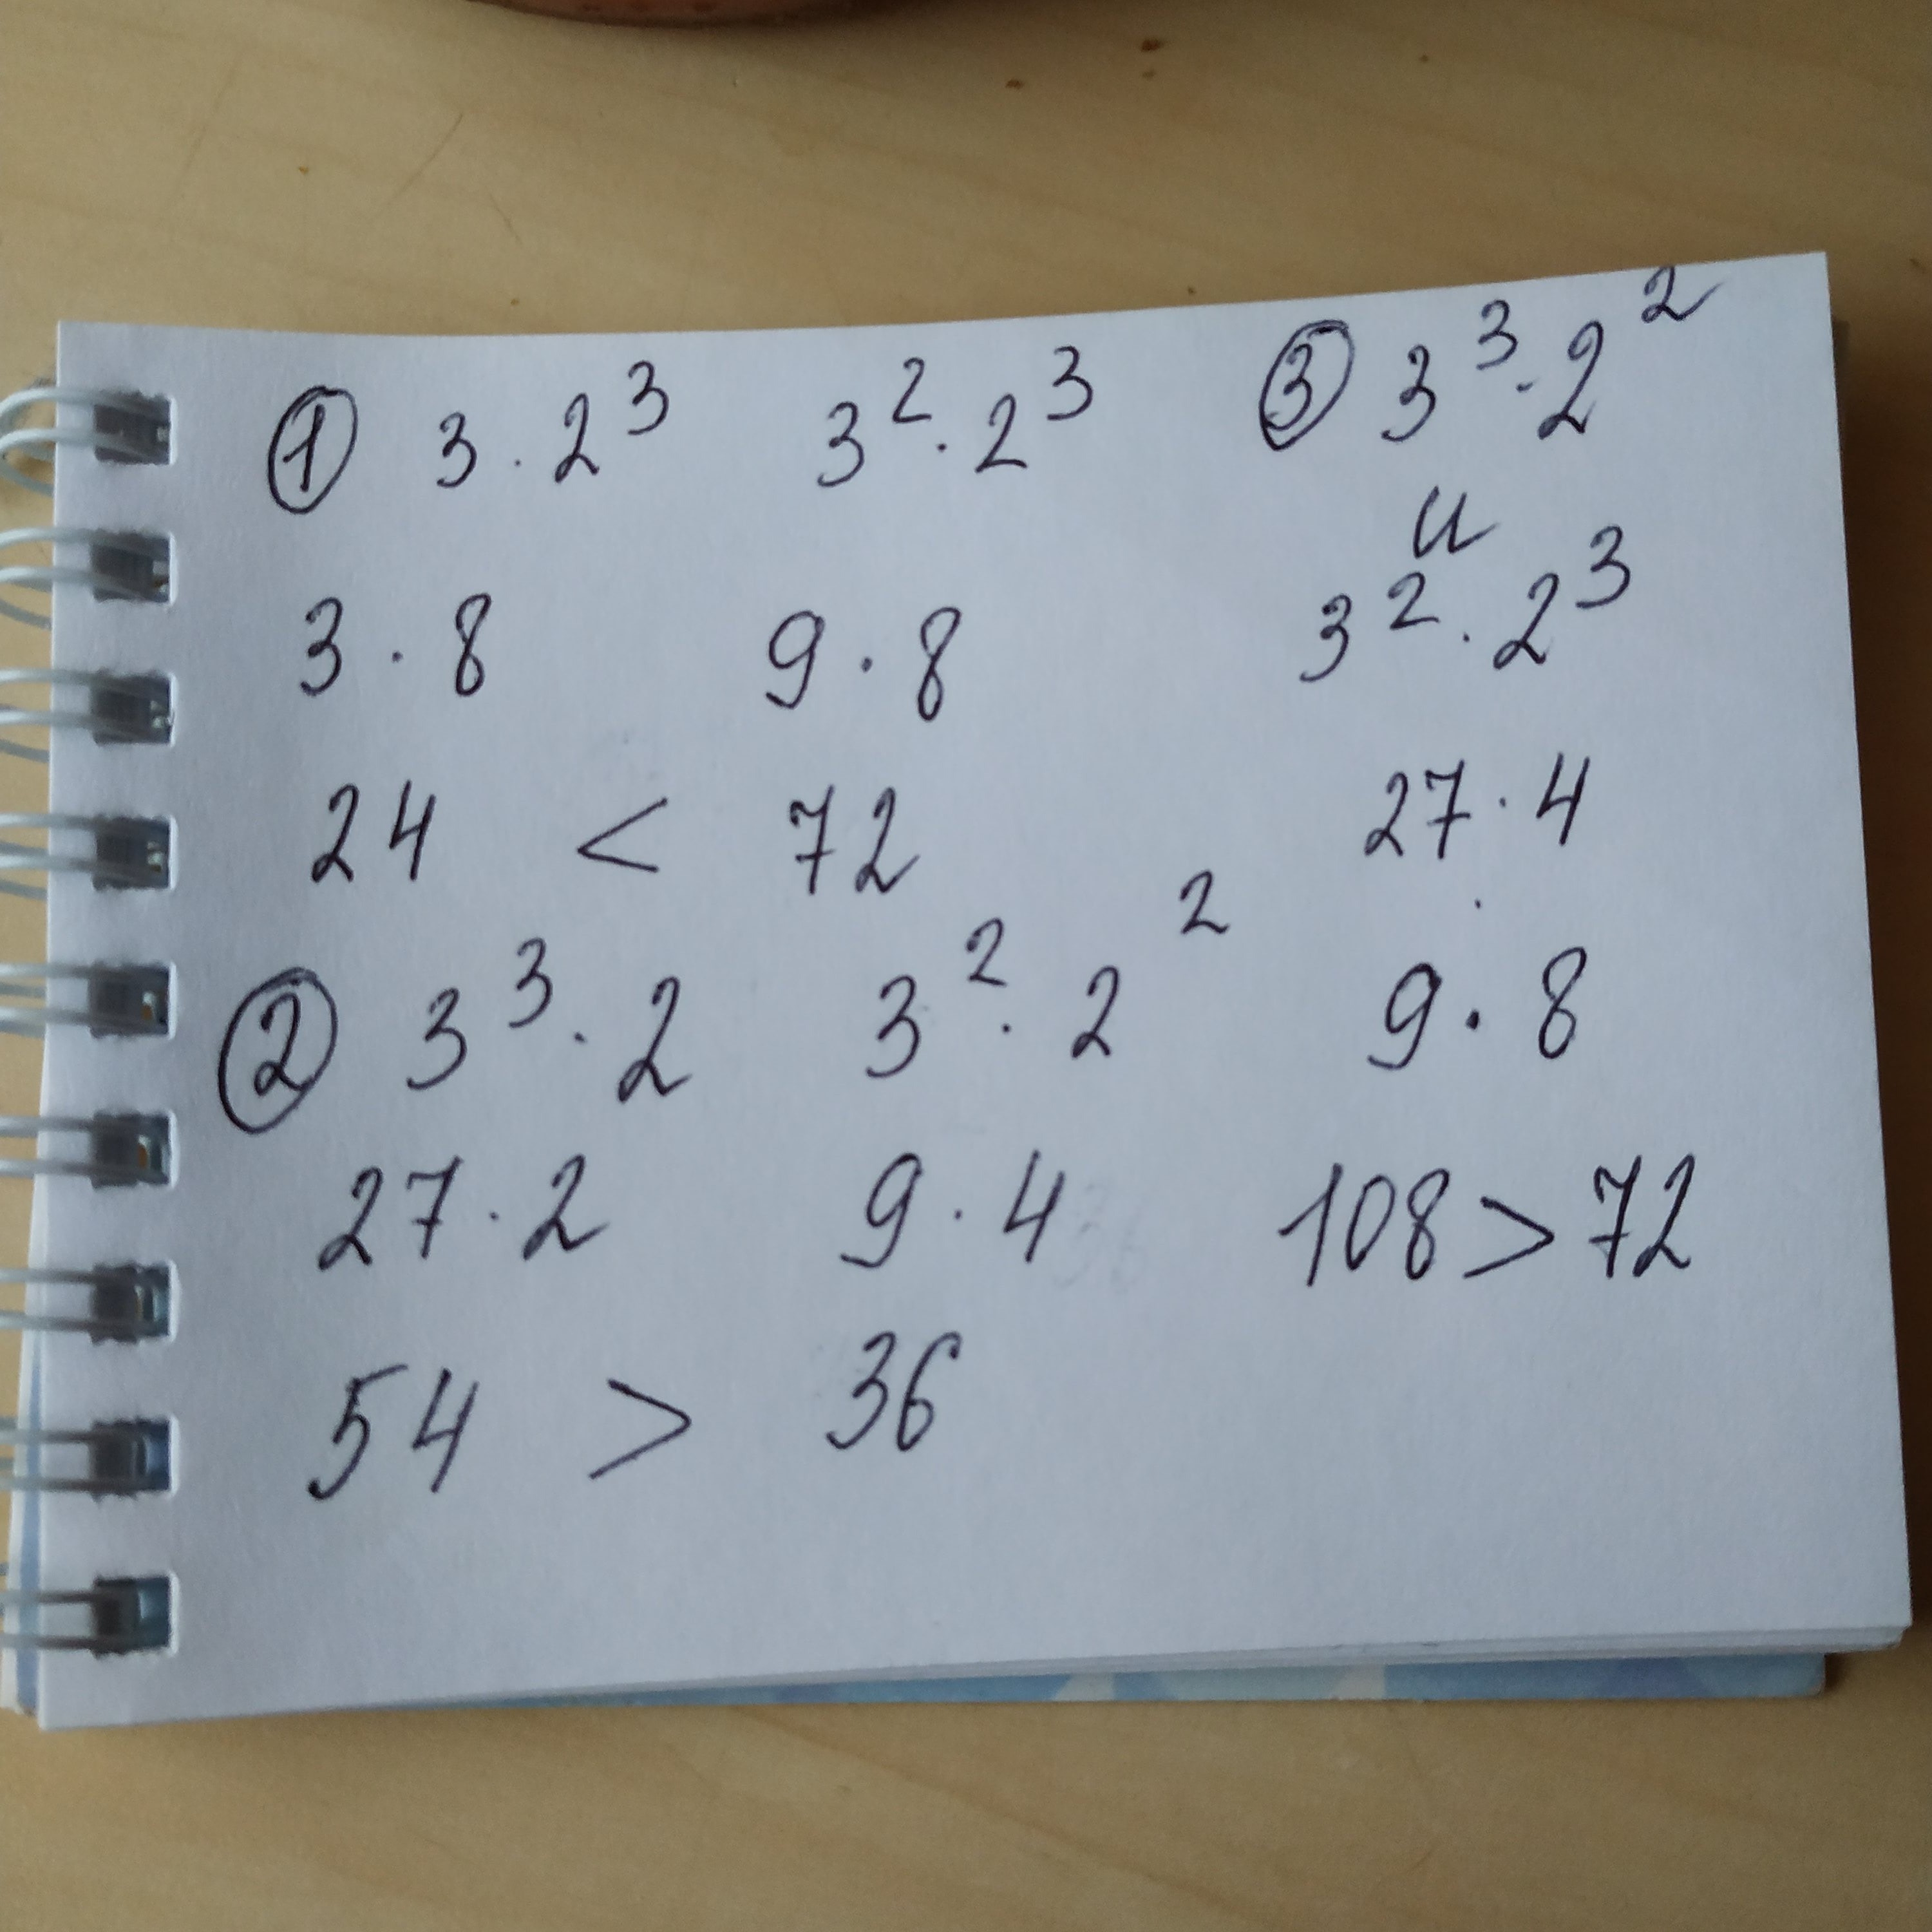 ① 3 · 2³   3² · 2³
3 · 8   9 · 8
24 < 72
② 3³ · 2   3² · 2²
27 · 2   9 · 4
54 > 36
③ 3³ · 2²
и
3² · 2³
27 · 4
9 · 8
108 > 72